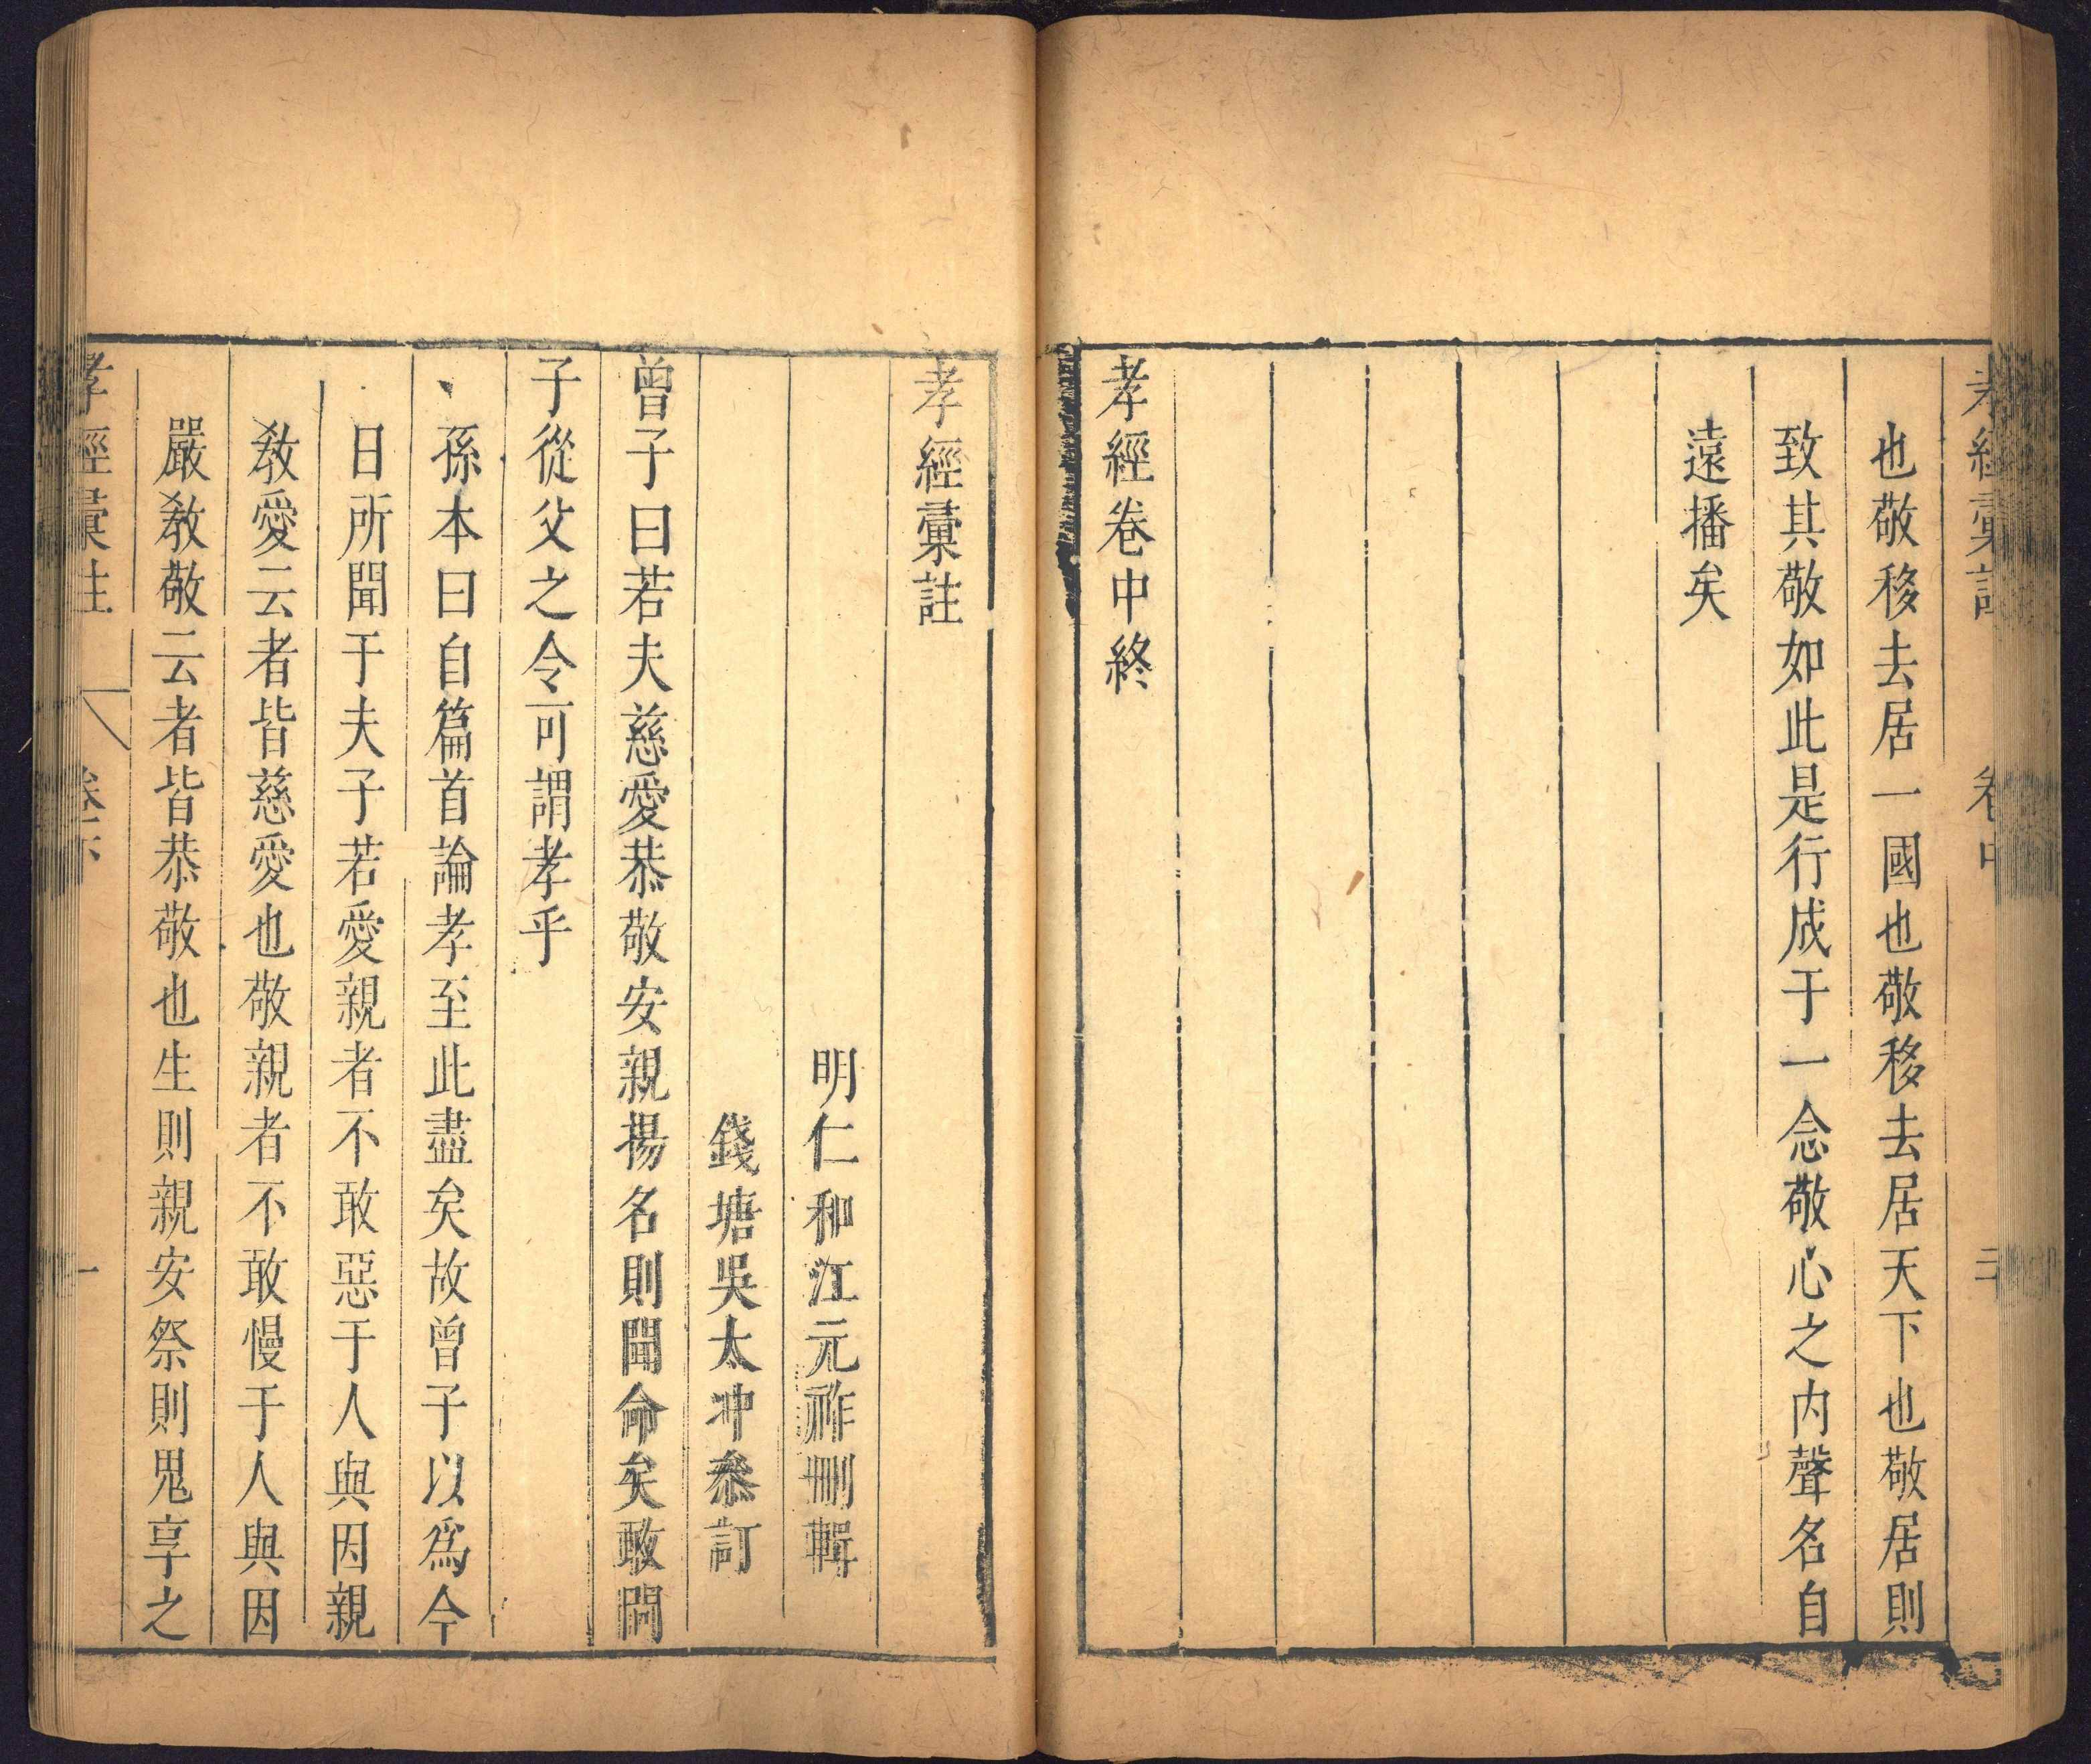 孝經彙註 卷中
也敬移去居一國也敬移去居天下也敬居則
致其敬如此是行成于一念敬心之內聲名自
遠播矣
孝經卷中終
孝經彙註
明仁和江元祚刪輯
錢塘吳太冲叅訂
曾子曰若夫慈愛恭敬安親揚名則聞命矣敢問
子從父之令可謂孝乎
孫本曰自篇首論孝至此盡矣故曾子以爲今
日所聞于夫子若愛親者不敢惡于人與因親
教愛云者皆慈愛也敬親者不敢慢于人與因
嚴教敬云者皆恭敬也生則親安祭則鬼享之
孝經彙註 卷下 一